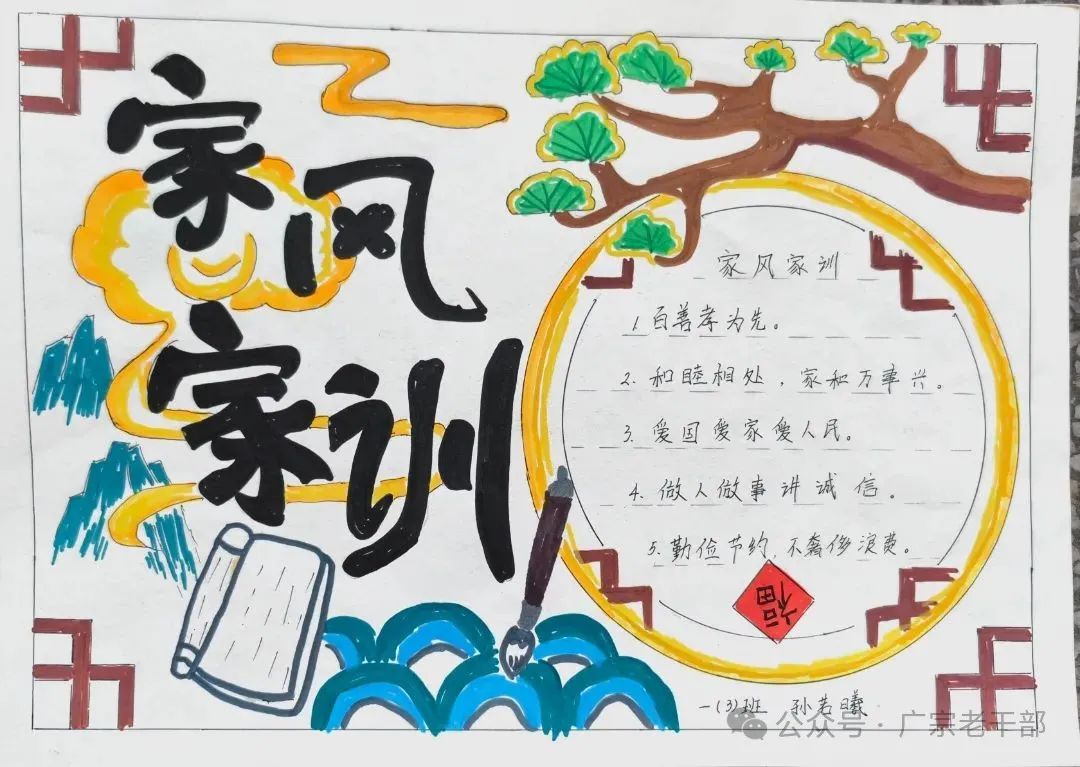 家风
家训
家风家训
1. 百善孝为先。
2. 和睦相处，家和万事兴。
3. 爱国爱家爱人民。
4. 做人做事讲诚信。
5. 勤俭节约，不奢侈浪费。
福
一(3)班 孙若曦
公众号·广宗老干部